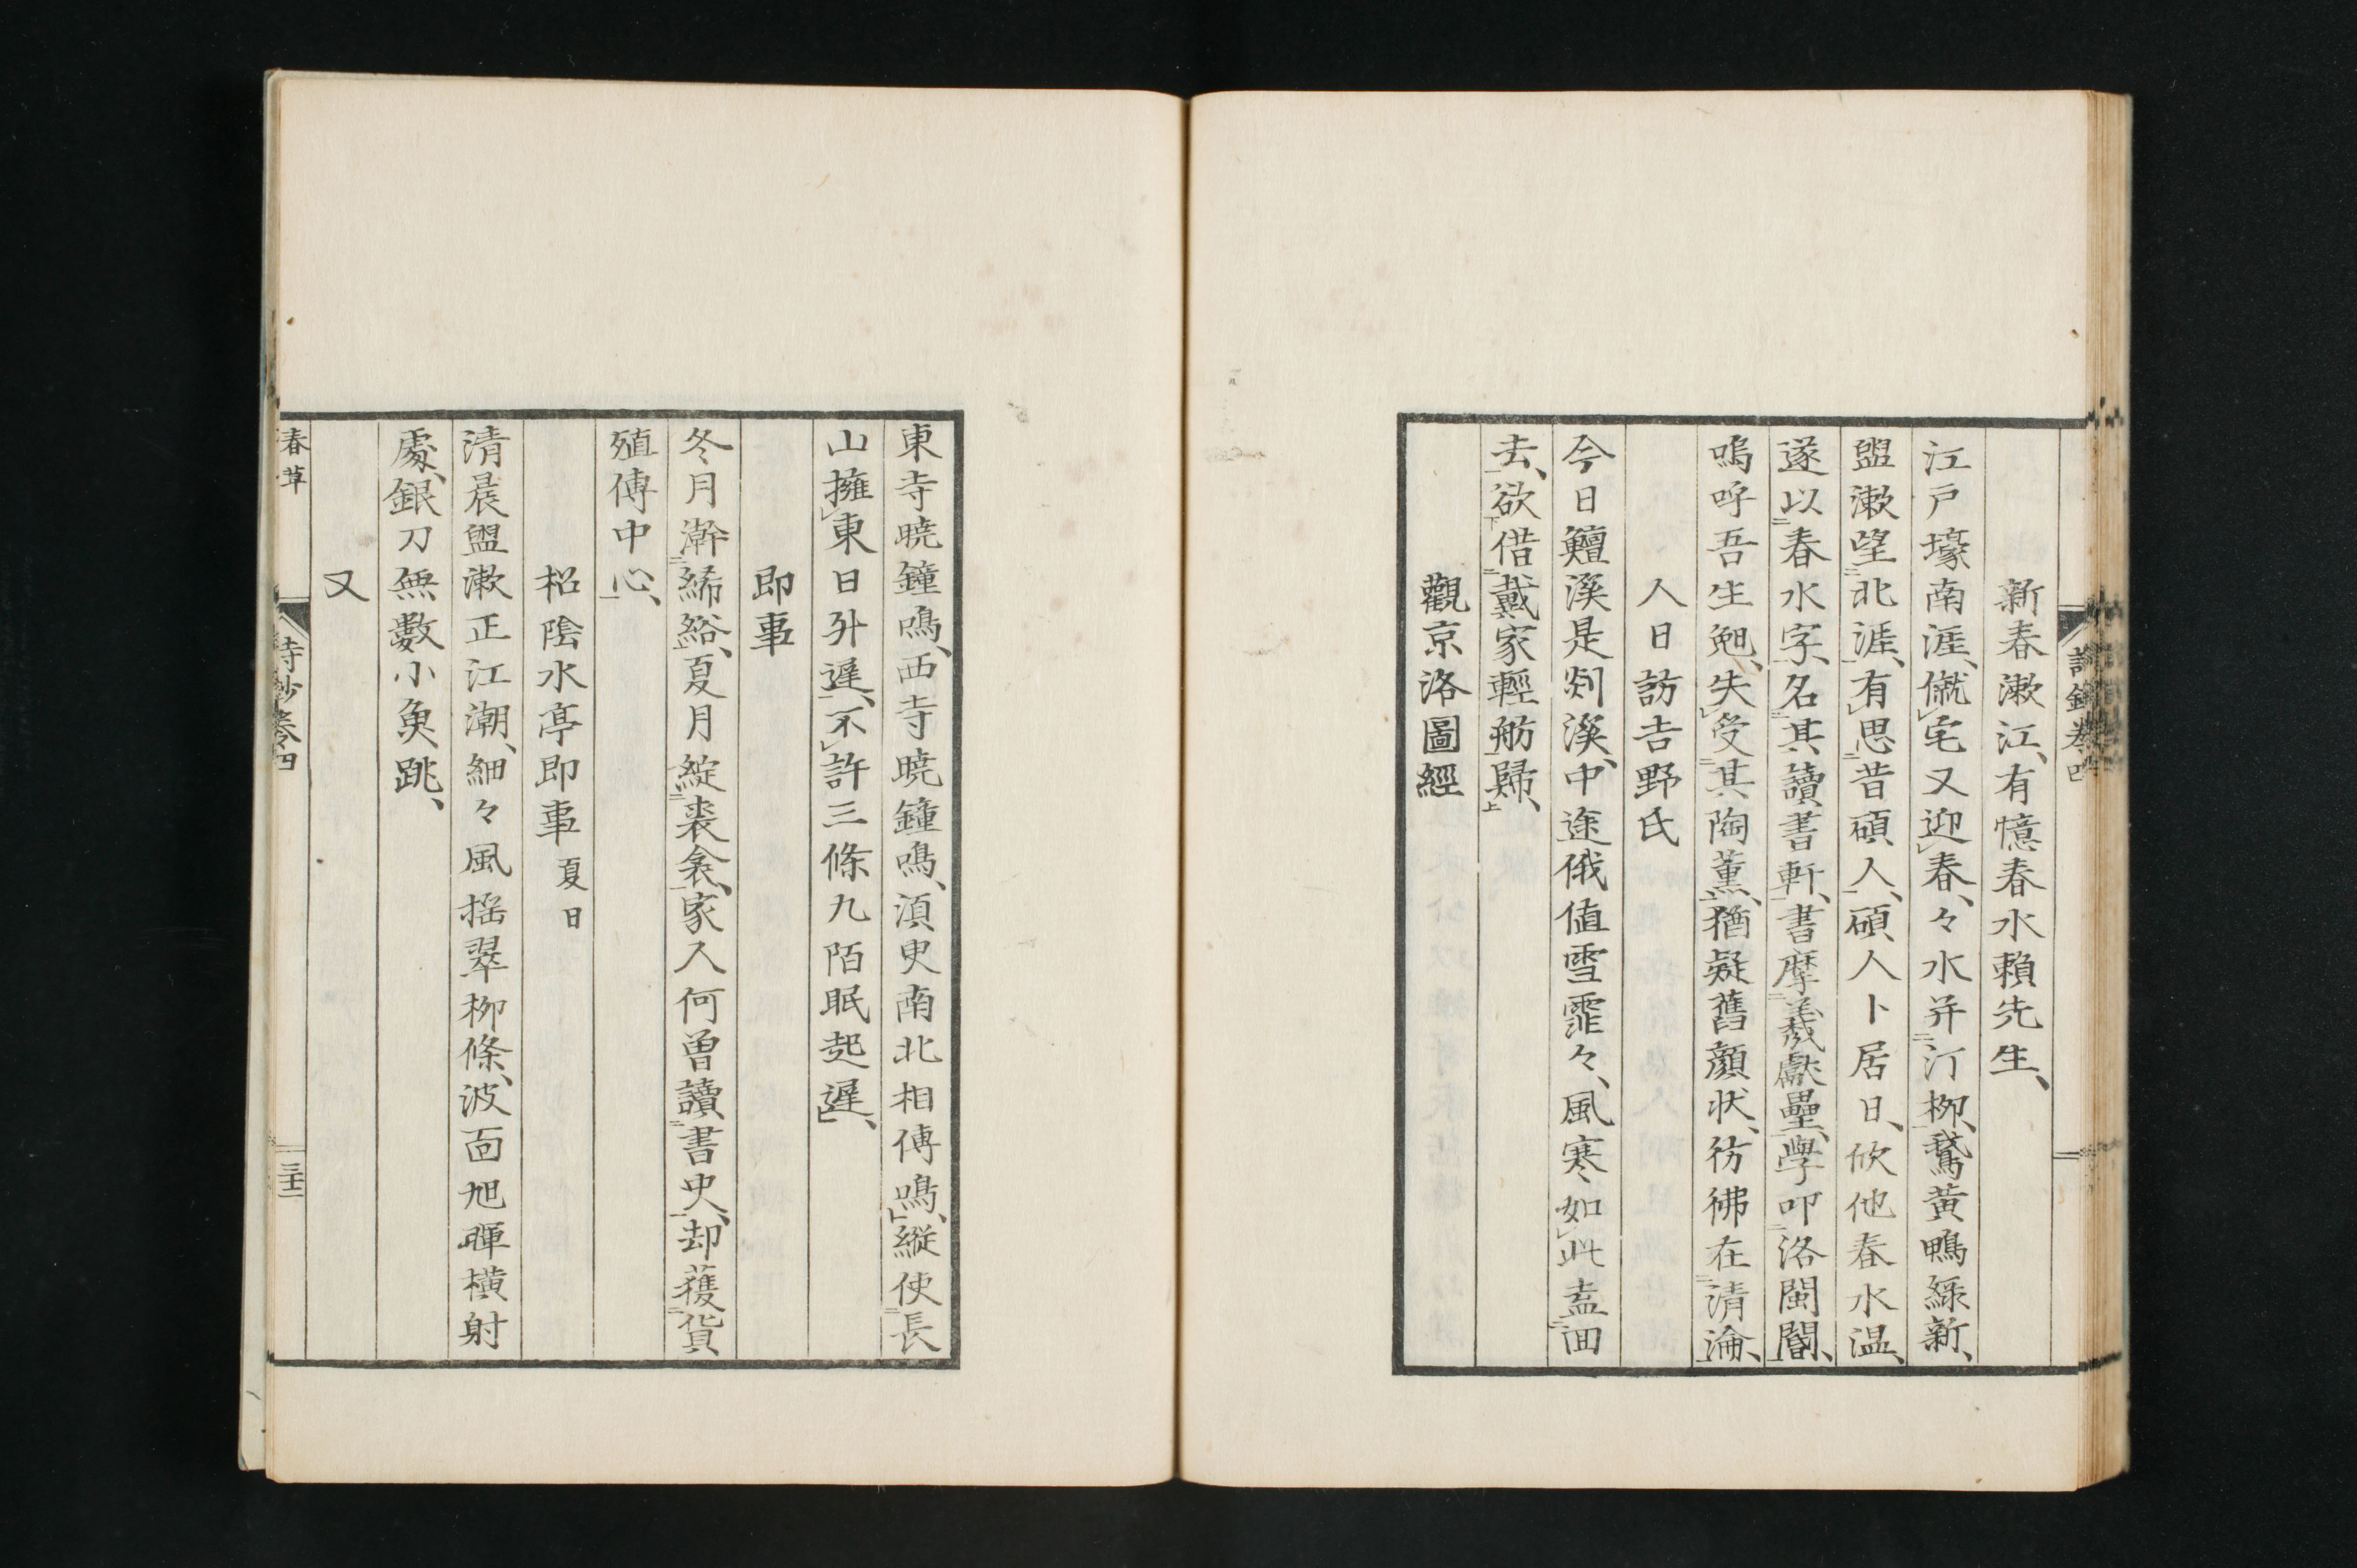 新春漱江、有憶春水賴先生、
江戸壕南涯、僦宅又迎春、々水并汀栁、鵞黄鴨綠新、
盥漱望北涯、有思昔碩人、碩人卜居日、欣他春水温、
遂以春水字、名其讀書軒、書摩羲獻壘、學叩洛閩閽、
嗚呼吾生𡖖、失受其陶薫、猶疑舊顔状、彷彿在清淪、
人日訪吉野氏
今日鱣溪是剡溪、中途俄値雪霏々、風寒如此盍回
去、欲借戴家輕舫歸、
觀京洛圖經
東寺曉鐘鳴、西寺曉鐘鳴、湏臾南北相傳鳴、縦使長
山擁東日升遲、不許三條九陌眠起遲、
即事
冬月澣絺綌、夏月綻裘衾、家人何曽讀書史、却獲貨
殖傳中心、
柖陰水亭即事 夏日
清晨盥漱正江潮、細々風揺翠栁條、波面旭暉橫射
處、銀刀無數小魚跳、
又
春草
詩鈔卷四
三十二